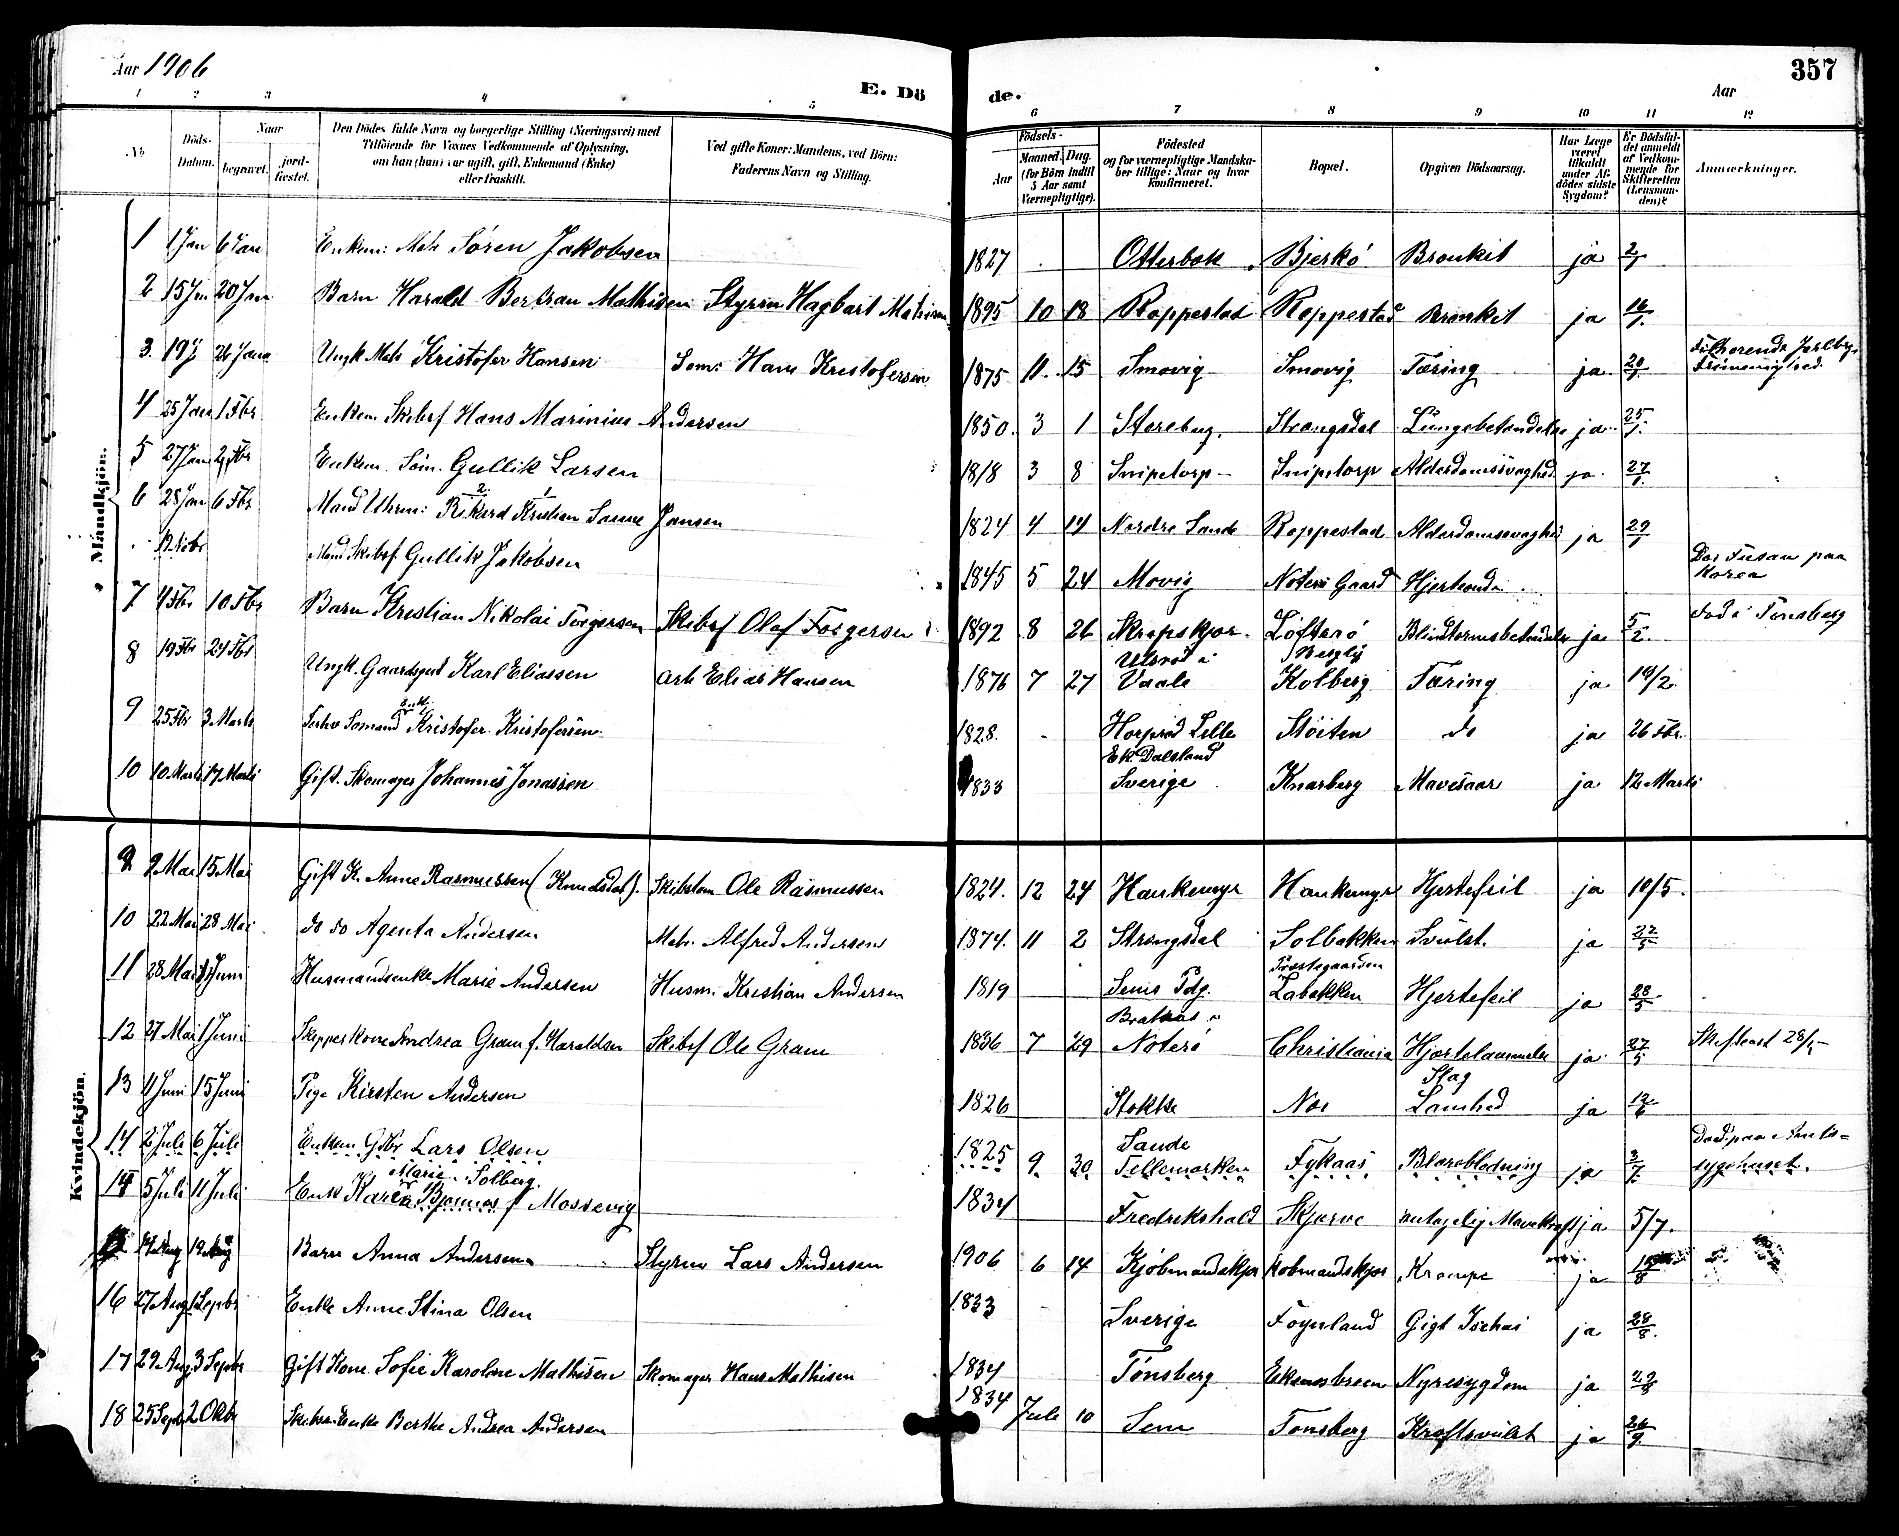 Aar 1906
E. Döde.
357
Aar
1 2 3 4 5 6 7 8 9 10 11 12
Nº
Döds-Datum.
Naar begravet. jordfæstet.
Den Dödes fulde Navn og borgerlige Stilling (Næringsvei) med Tilföiende for Voxnes Vedkommende af Oplysning, om han (hun) var ugift, gift, Enkemand (Enke) eller fraskilt.
Ved gifte Koner: Mandens, ved Börn: Faderens Navn og Stilling.
Födsels-
Aar
Maaned. Dag.
(for Börn indtil 5 Aar samt Værnepligtige).
Födested og for værnepligtige Mandskaber tillige: Naar og hvor konfirmeret.
Bopæl.
Opgiven Dödsaarsag.
Har Læge været tilkaldt under Afdödes sidste Sygdom?
Er Dödsfaldet anmeldt af Vedkommende for Skifteretten (Lensmanden)?
Anmærkninger.
Mandkjön.
1 1 Jan 6 Jan Enkem: Matr Søren Jakobsen 1827 Otterbæk Bjerkø Bronkit ja 2/1
2 15 Jan 20 Jan Barn Harald Bertran Mathisen Styrm Hagbart Mathisen 1895 10 18 Roppestad Roppestad Bronkit ja 16/1
3 19 J 26 Jan Ungk Matr Kristofer Hansen Søm: Hans Kristofersen 1875 11 15 Smovig Smovig Tæring ja 20/1
4 25 Jan 1 Fbr Enkem Skibsf Hans Marinius Andersen 1850 3 1 Storeberg Strengsdal Lungebetændelse ja 25/1
5 27 Jan 2 Fbr Enkem Søm. Gullik Larsen 1818 3 8 Snipetorp Snipetorp Alderdomssvaghed ja 27/1
6 28 Jan 6 Fbr Mand Uhrm: Rikard Kristian Jansen 1824 4 14 Nordre Sande Roppestad Alderdomssvaghed ja 29/1
17 Nobr Mand Skibsf Gullik Jakobsen 1845 5 24 Movig Noterø Gaard Hjerteonde Død i Fusan paa Korea
7 4 Fbr 10 Fbr Barn Kristian Nikolai Torgersen Skibsf Olaf Torgersen 1892 8 26 Skrapskjær Løfterø Blindtarmsbetændelse ja 5/2 Død i Tønsberg
8 19 Fbr 24 Fbr Ungk. Gaardsgut Karl Eliassen Arb Elias Hansen 1876 7 27 Ulsrød i Vaale Berglij Kolberg Tæring ja 19/2
9 25 Fbr 3 Marts Sømand Enkem Kristofer Kristofersen 1828 Horprød Lille do ja 26 Fbr.
10 10 Marts 17 Marts Gift. Skomager Johannes Jonassen 1833 Ek. Dalsland Sverige Knarberg Mavesaar ja 12 Marts
Kvindekjön.
9 9 Mai 15 Mai Gift K. Anne Rasmussen (Knudsdat). Skibstøm Ole Rasmussen 1824 12 24 Haukemyr Haukemyr Hjertefeil ja 10/5
10 22 Mai 28 Mai do do Agenta Andersen Matr. Alfred Andersen 1874 11 2 Strengsdal Solbakken Svulst ja 22/5
11 28 Mai 1 Juni Husmandsenke Marie Andersen Husm: Kristian Andersen 1819 Sems Pdg. Præstegaarden Labakken Hjertefeil ja 28/5
12 27 Mai 1 Juni Skipperkone Andrea Gram f. Haraldsen Skibsf Ole Gram 1836 7 29 Noterø Christiania Hjertelammelse ja 27/5
13 11 Juni 15 Juni Pige Kirsten Andersen 1826 Stokke Nes Slag Lamhed ja 12/6
14 2 Juli 6 Juli Enkem Gdbr Lars Olsen 1825 9 30 Sande Tellemarken Fykaas Blæreblødning ja 3/7 Død paa Amtssygehuset.
14 5 Juli 11 Juli Enk Karen Marie Solberg Bjønnes f Mossevig 1834 Fredrikshald Skjerve antagelig Mavekræft ja 5/7.
14 Aug 19 Aug Barn Anna Andersen Styrm Lars Andersen 1906 6 14 Kjøbmandskjær Kobmandskjær Krampe ja 18/8
16 27 Aug 1 Sepbr Enke Anne Stina Olsen 1833 Sverige Føynland Gigt Ischias ja 28/8
17 29 Aug 3 Sepbr Gift Kone Sofie Karoline Mathisen Skomager Hans Mathisen 1834 Tønsberg Ekenesbreen Nyresygdom ja 29/8
18 25 Sept 2 Okbr Enke Berthe Andrea Andersen 1834 Juli 10 Sem Tønsberg Kræftsvulst ja 26/9